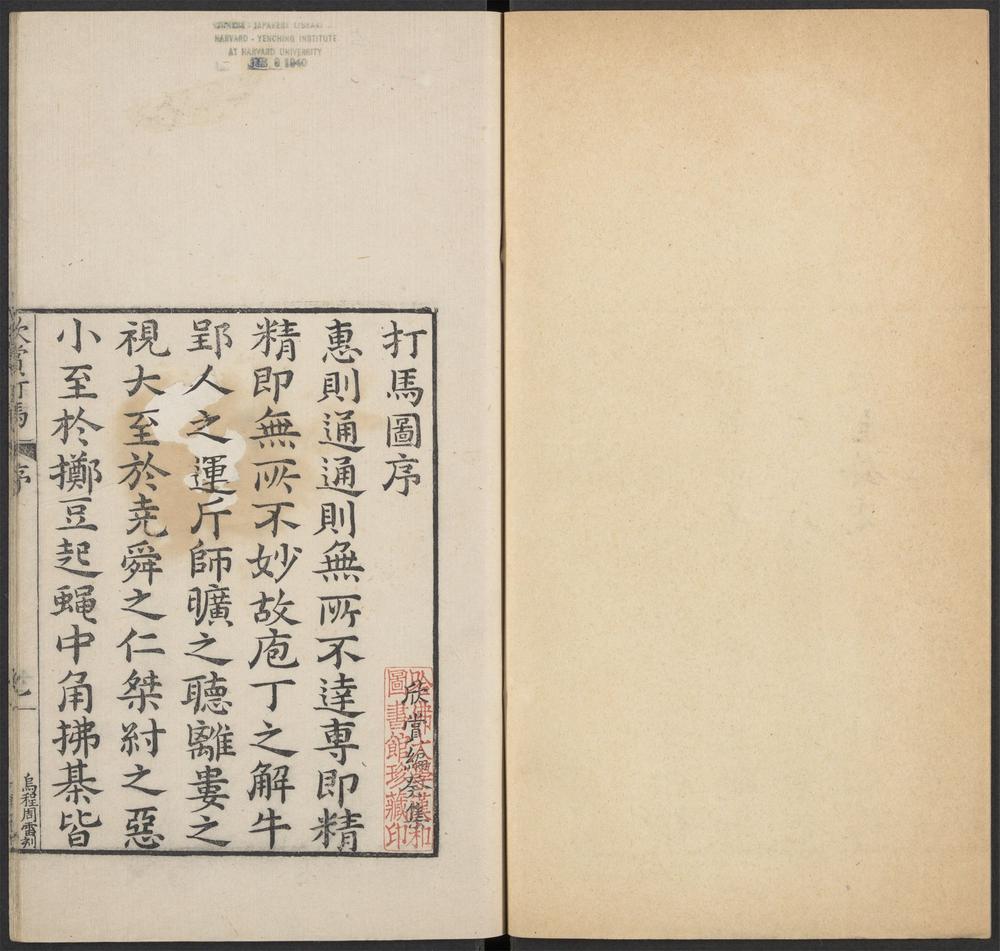 CHINESE - JAPANESE LIBRARY
HARVARD - YENCHING INSTITUTE
AT HARVARD UNIVERSITY
8 1940
打馬圖序
欣賞編全集
哈佛大學漢和
圖書館珍藏印
惠則通通則無所不達專即精
精即無所不妙故庖丁之解牛
郢人之運斤師曠之聽離婁之
視大至於尭舜之仁桀紂之惡
小至於擲豆起蝇中角拂棊皆
欣賞打馬
序
烏程周雷刻